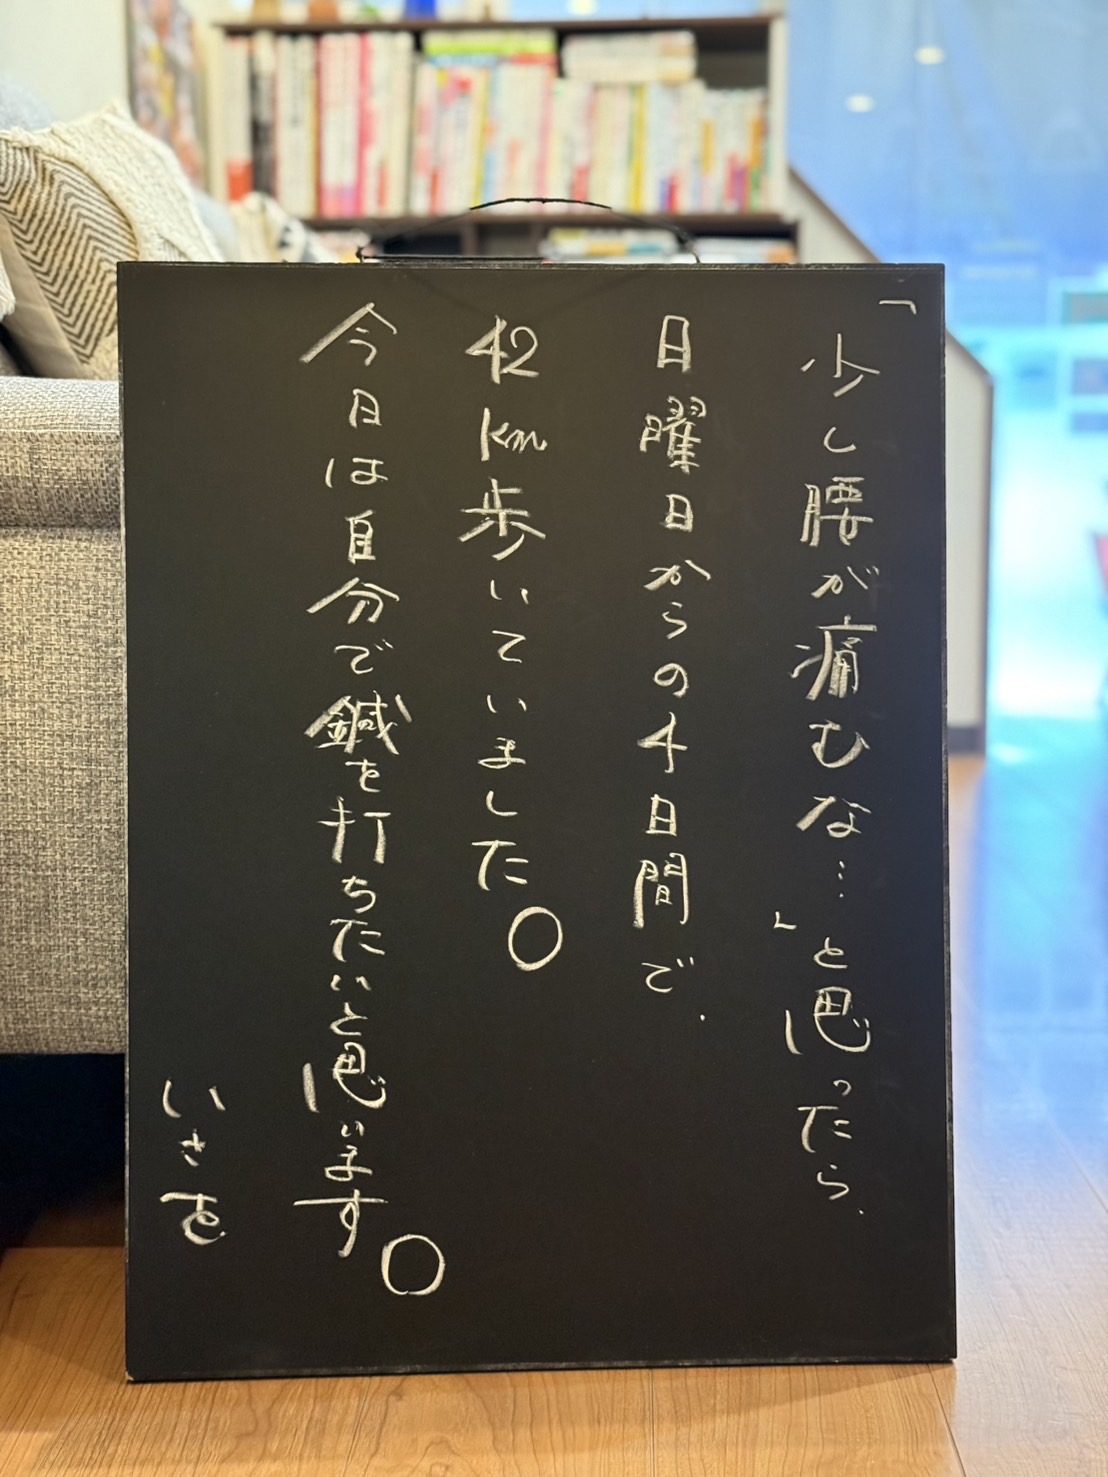 「少し腰が痛むな…」と思ったら、
日曜日からの4日間で、
42km歩いていました。
今日は自分で鍼を打ちたいと思います。
いさを